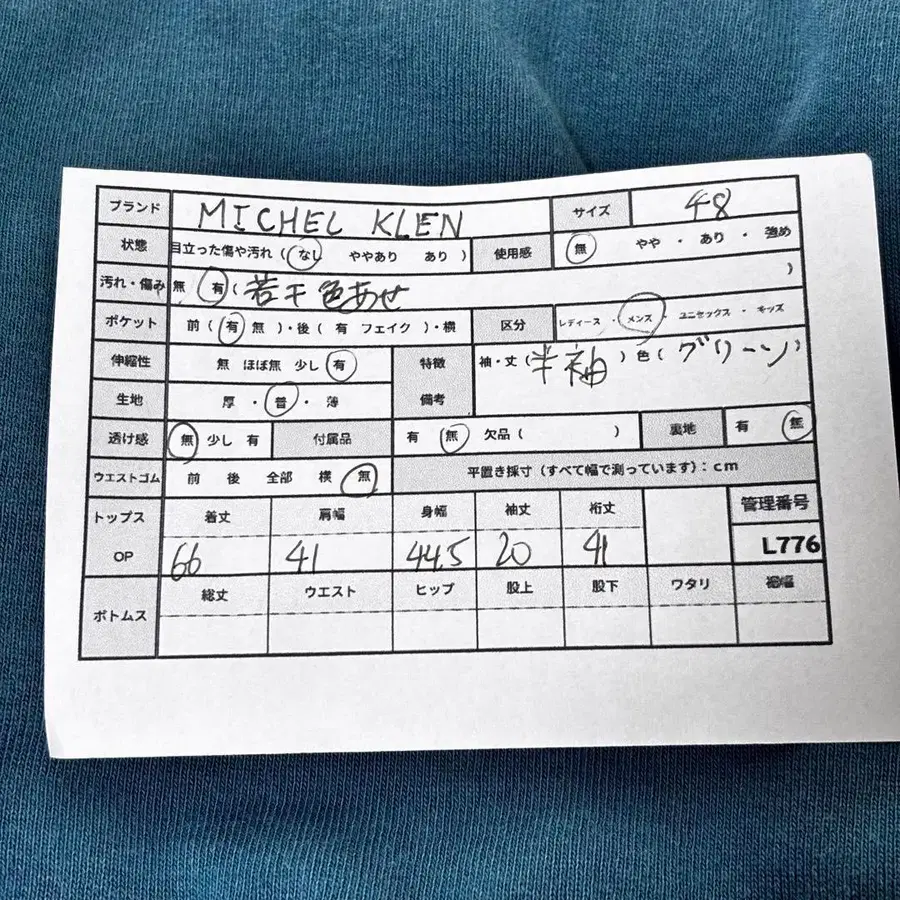 ブランド MICHEL KLEN サイズ 48
状態 目立った傷や汚れ ( なし ややあり あり ) 使用感 無 やや ・ あり ・ 強め
汚れ・傷み 無 有 ( 若干色あせ )
ポケット 前 ( 有 無 )・後 ( 有 フェイク )・横 区分 レディース ・ メンズ ・ ユニセックス ・ キッズ
伸縮性 無 ほぼ無 少し 有 特徴 袖・丈 ( 半袖 ) 色 ( グリーン )
生地 厚 ・ 普 ・ 薄 備考
透け感 無 少し 有 付属品 有 無 欠品 ( ) 裏地 有 無
ウエストゴム 前 後 全部 横 無 平置き採寸 (すべて幅で測っています) : cm
トップス 着丈 肩幅 身幅 袖丈 裄丈 管理番号
OP 66 41 44.5 20 41 L776
ボトムス 総丈 ウエスト ヒップ 股上 股下 ワタリ 裾幅